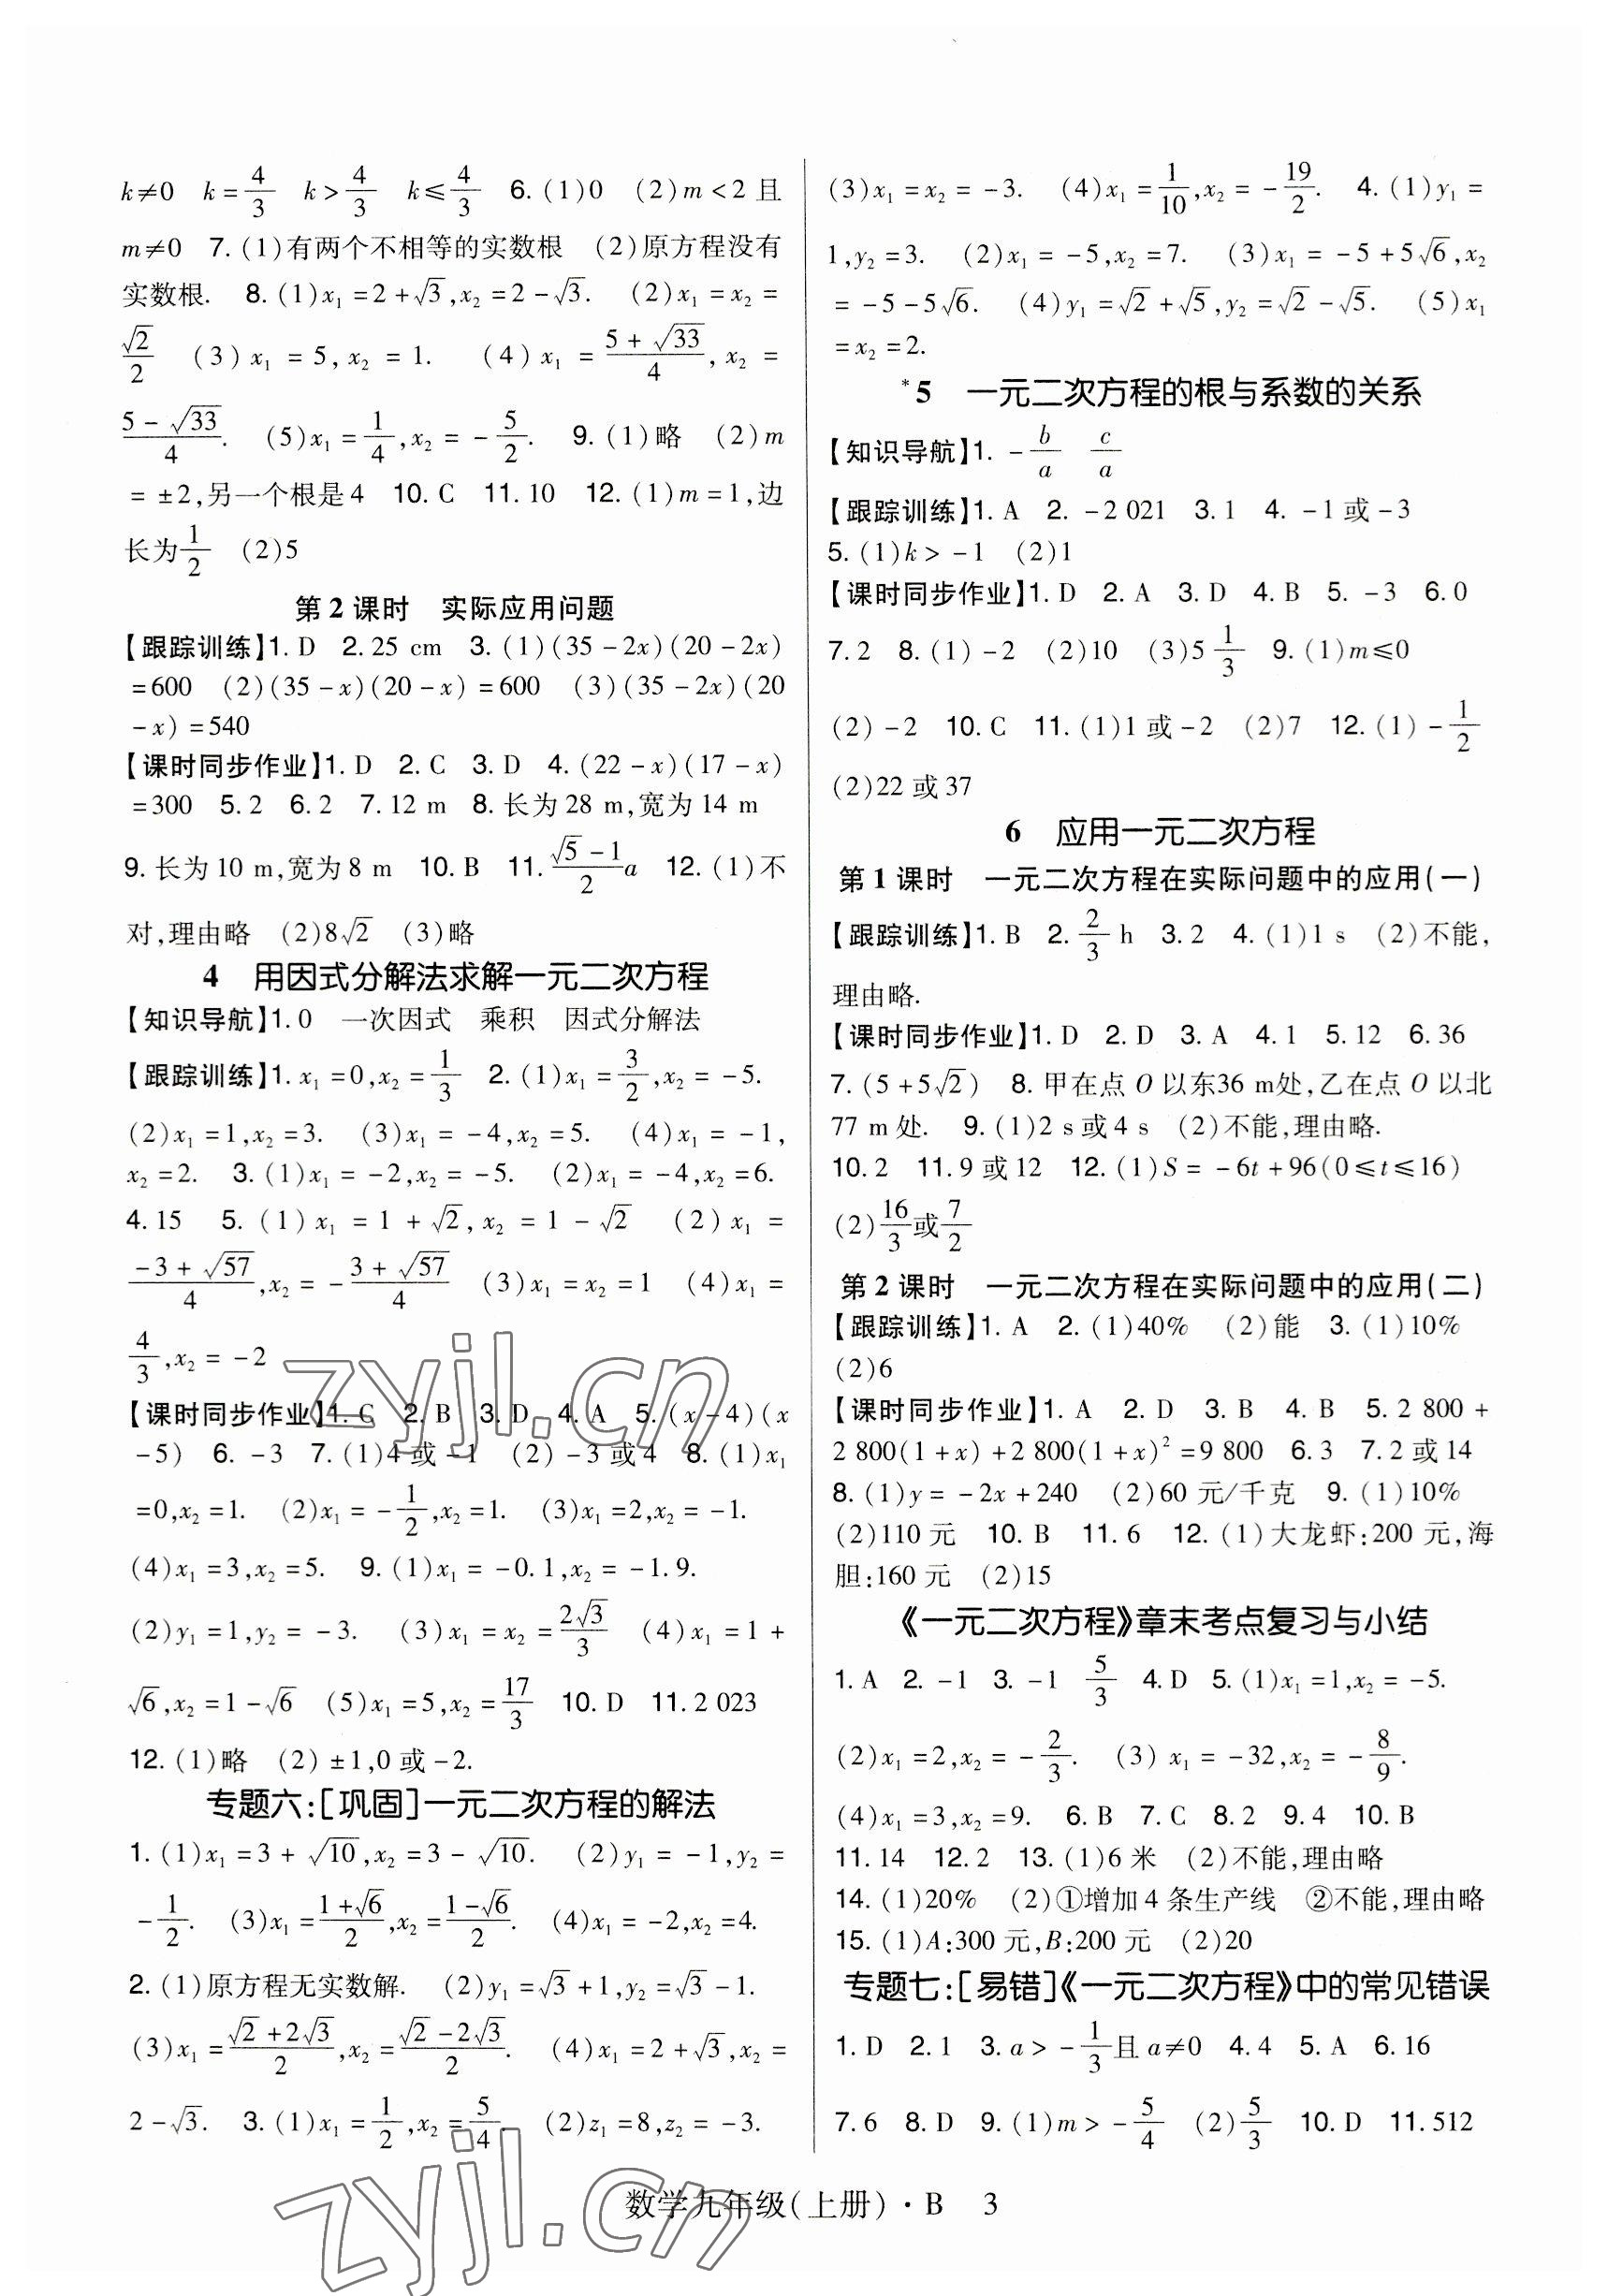 k≠0 k=4/3 k>4/3 k≤4/3 6.(1)0 (2)m<2且
m≠0 7.(1)有两个不相等的实数根 (2)原方程没有
实数根. 8.(1)x₁=2+√3,x₂=2-√3. (2)x₁=x₂=
√2/2 (3)x₁=5,x₂=1. (4)x₁=(5+√33)/4,x₂=
(5-√33)/4. (5)x₁=1/4,x₂=-5/2. 9.(1)略 (2)m
=±2,另一个根是4 10.C 11.10 12.(1)m=1,边
长为1/2 (2)5
第2课时 实际应用问题
【跟踪训练】1.D 2.25 cm 3.(1)(35-2x)(20-2x)
=600 (2)(35-x)(20-x)=600 (3)(35-2x)(20
-x)=540
【课时同步作业】1.D 2.C 3.D 4.(22-x)(17-x)
=300 5.2 6.2 7.12 m 8.长为28 m,宽为14 m
9.长为10 m,宽为8 m 10.B 11.(√5-1)/2 a 12.(1)不
对,理由略 (2)8√2 (3)略
4 用因式分解法求解一元二次方程
【知识导航】1.0 一次因式 乘积 因式分解法
【跟踪训练】1.x₁=0,x₂=1/3 2.(1)x₁=3/2,x₂=-5.
(2)x₁=1,x₂=3. (3)x₁=-4,x₂=5. (4)x₁=-1,
x₂=2. 3.(1)x₁=-2,x₂=-5. (2)x₁=-4,x₂=6.
4.15 5.(1)x₁=1+√2,x₂=1-√2 (2)x₁=
(-3+√57)/4,x₂=-(3+√57)/4 (3)x₁=x₂=1 (4)x₁=
4/3,x₂=-2
【课时同步作业】1.C 2.B 3.D 4.A 5.(x-4)(x
-5) 6.-3 7.(1)4或-1 (2)-3或4 8.(1)x₁
=0,x₂=1. (2)x₁=-1/2,x₂=1. (3)x₁=2,x₂=-1.
(4)x₁=3,x₂=5. 9.(1)x₁=-0.1,x₂=-1.9.
(2)y₁=1,y₂=-3. (3)x₁=x₂=2√3/3 (4)x₁=1+
√6,x₂=1-√6 (5)x₁=5,x₂=17/3 10.D 11.2 023
12.(1)略 (2)±1,0或-2.
专题六:[巩固]一元二次方程的解法
1.(1)x₁=3+√10,x₂=3-√10. (2)y₁=-1,y₂=
-1/2. (3)x₁=(1+√6)/2,x₂=(1-√6)/2. (4)x₁=-2,x₂=4.
2.(1)原方程无实数解. (2)y₁=√3+1,y₂=√3-1.
(3)x₁=(√2+2√3)/2,x₂=(√2-2√3)/2. (4)x₁=2+√3,x₂=
2-√3. 3.(1)x₁=1/2,x₂=5/4 (2)z₁=8,z₂=-3.
(3)x₁=x₂=-3. (4)x₁=1/10,x₂=-19/2. 4.(1)y₁=
1,y₂=3. (2)x₁=-5,x₂=7. (3)x₁=-5+5√6,x₂
=-5-5√6. (4)y₁=√2+√5,y₂=√2-√5. (5)x₁
=x₂=2.
*5 一元二次方程的根与系数的关系
【知识导航】1.-b/a c/a
【跟踪训练】1.A 2.-2 021 3.1 4.-1或-3
5.(1)k>-1 (2)1
【课时同步作业】1.D 2.A 3.D 4.B 5.-3 6.0
7.2 8.(1)-2 (2)10 (3)5 1/3 9.(1)m≤0
(2)-2 10.C 11.(1)1或-2 (2)7 12.(1)-1/2
(2)22或37
6 应用一元二次方程
第1课时 一元二次方程在实际问题中的应用(一)
【跟踪训练】1.B 2.2/3 h 3.2 4.(1)1 s (2)不能,
理由略.
【课时同步作业】1.D 2.D 3.A 4.1 5.12 6.36
7.(5+5√2) 8.甲在点O以东36 m处,乙在点O以北
77 m处. 9.(1)2 s或4 s (2)不能,理由略.
10.2 11.9或12 12.(1)S=-6t+96(0≤t≤16)
(2)16/3或7/2
第2课时 一元二次方程在实际问题中的应用(二)
【跟踪训练】1.A 2.(1)40% (2)能 3.(1)10%
(2)6
【课时同步作业】1.A 2.D 3.B 4.B 5.2 800+
2 800(1+x)+2 800(1+x)²=9 800 6.3 7.2或14
8.(1)y=-2x+240 (2)60元/千克 9.(1)10%
(2)110元 10.B 11.6 12.(1)大龙虾:200元,海
胆:160元 (2)15
《一元二次方程》章末考点复习与小结
1.A 2.-1 3.-1 5/3 4.D 5.(1)x₁=1,x₂=-5.
(2)x₁=2,x₂=-2/3. (3)x₁=-32,x₂=-8/9.
(4)x₁=3,x₂=9. 6.B 7.C 8.2 9.4 10.B
11.14 12.2 13.(1)6米 (2)不能,理由略
14.(1)20% (2)①增加4条生产线 ②不能,理由略
15.(1)A:300元,B:200元 (2)20
专题七:[易错]《一元二次方程》中的常见错误
1.D 2.1 3.a>-1/3且a≠0 4.4 5.A 6.16
7.6 8.D 9.(1)m>-5/4 (2)5/3 10.D 11.512
数学九年级(上册)·B 3
zyjl.cn
zyjl.cn